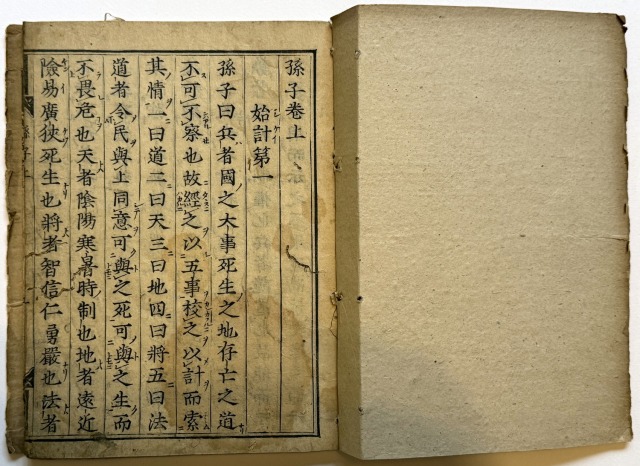 孫子卷上
始計第一
孫子曰兵者國之大事死生之地存亡之道
不可不察也故經之以五事校之以計而索
其情一曰道二曰天三曰地四曰將五曰法
道者令民與上同意可與之死可與之生而
不畏危也天者陰陽寒暑時制也地者遠近
險易廣狹死生也將者智信仁勇嚴也法者